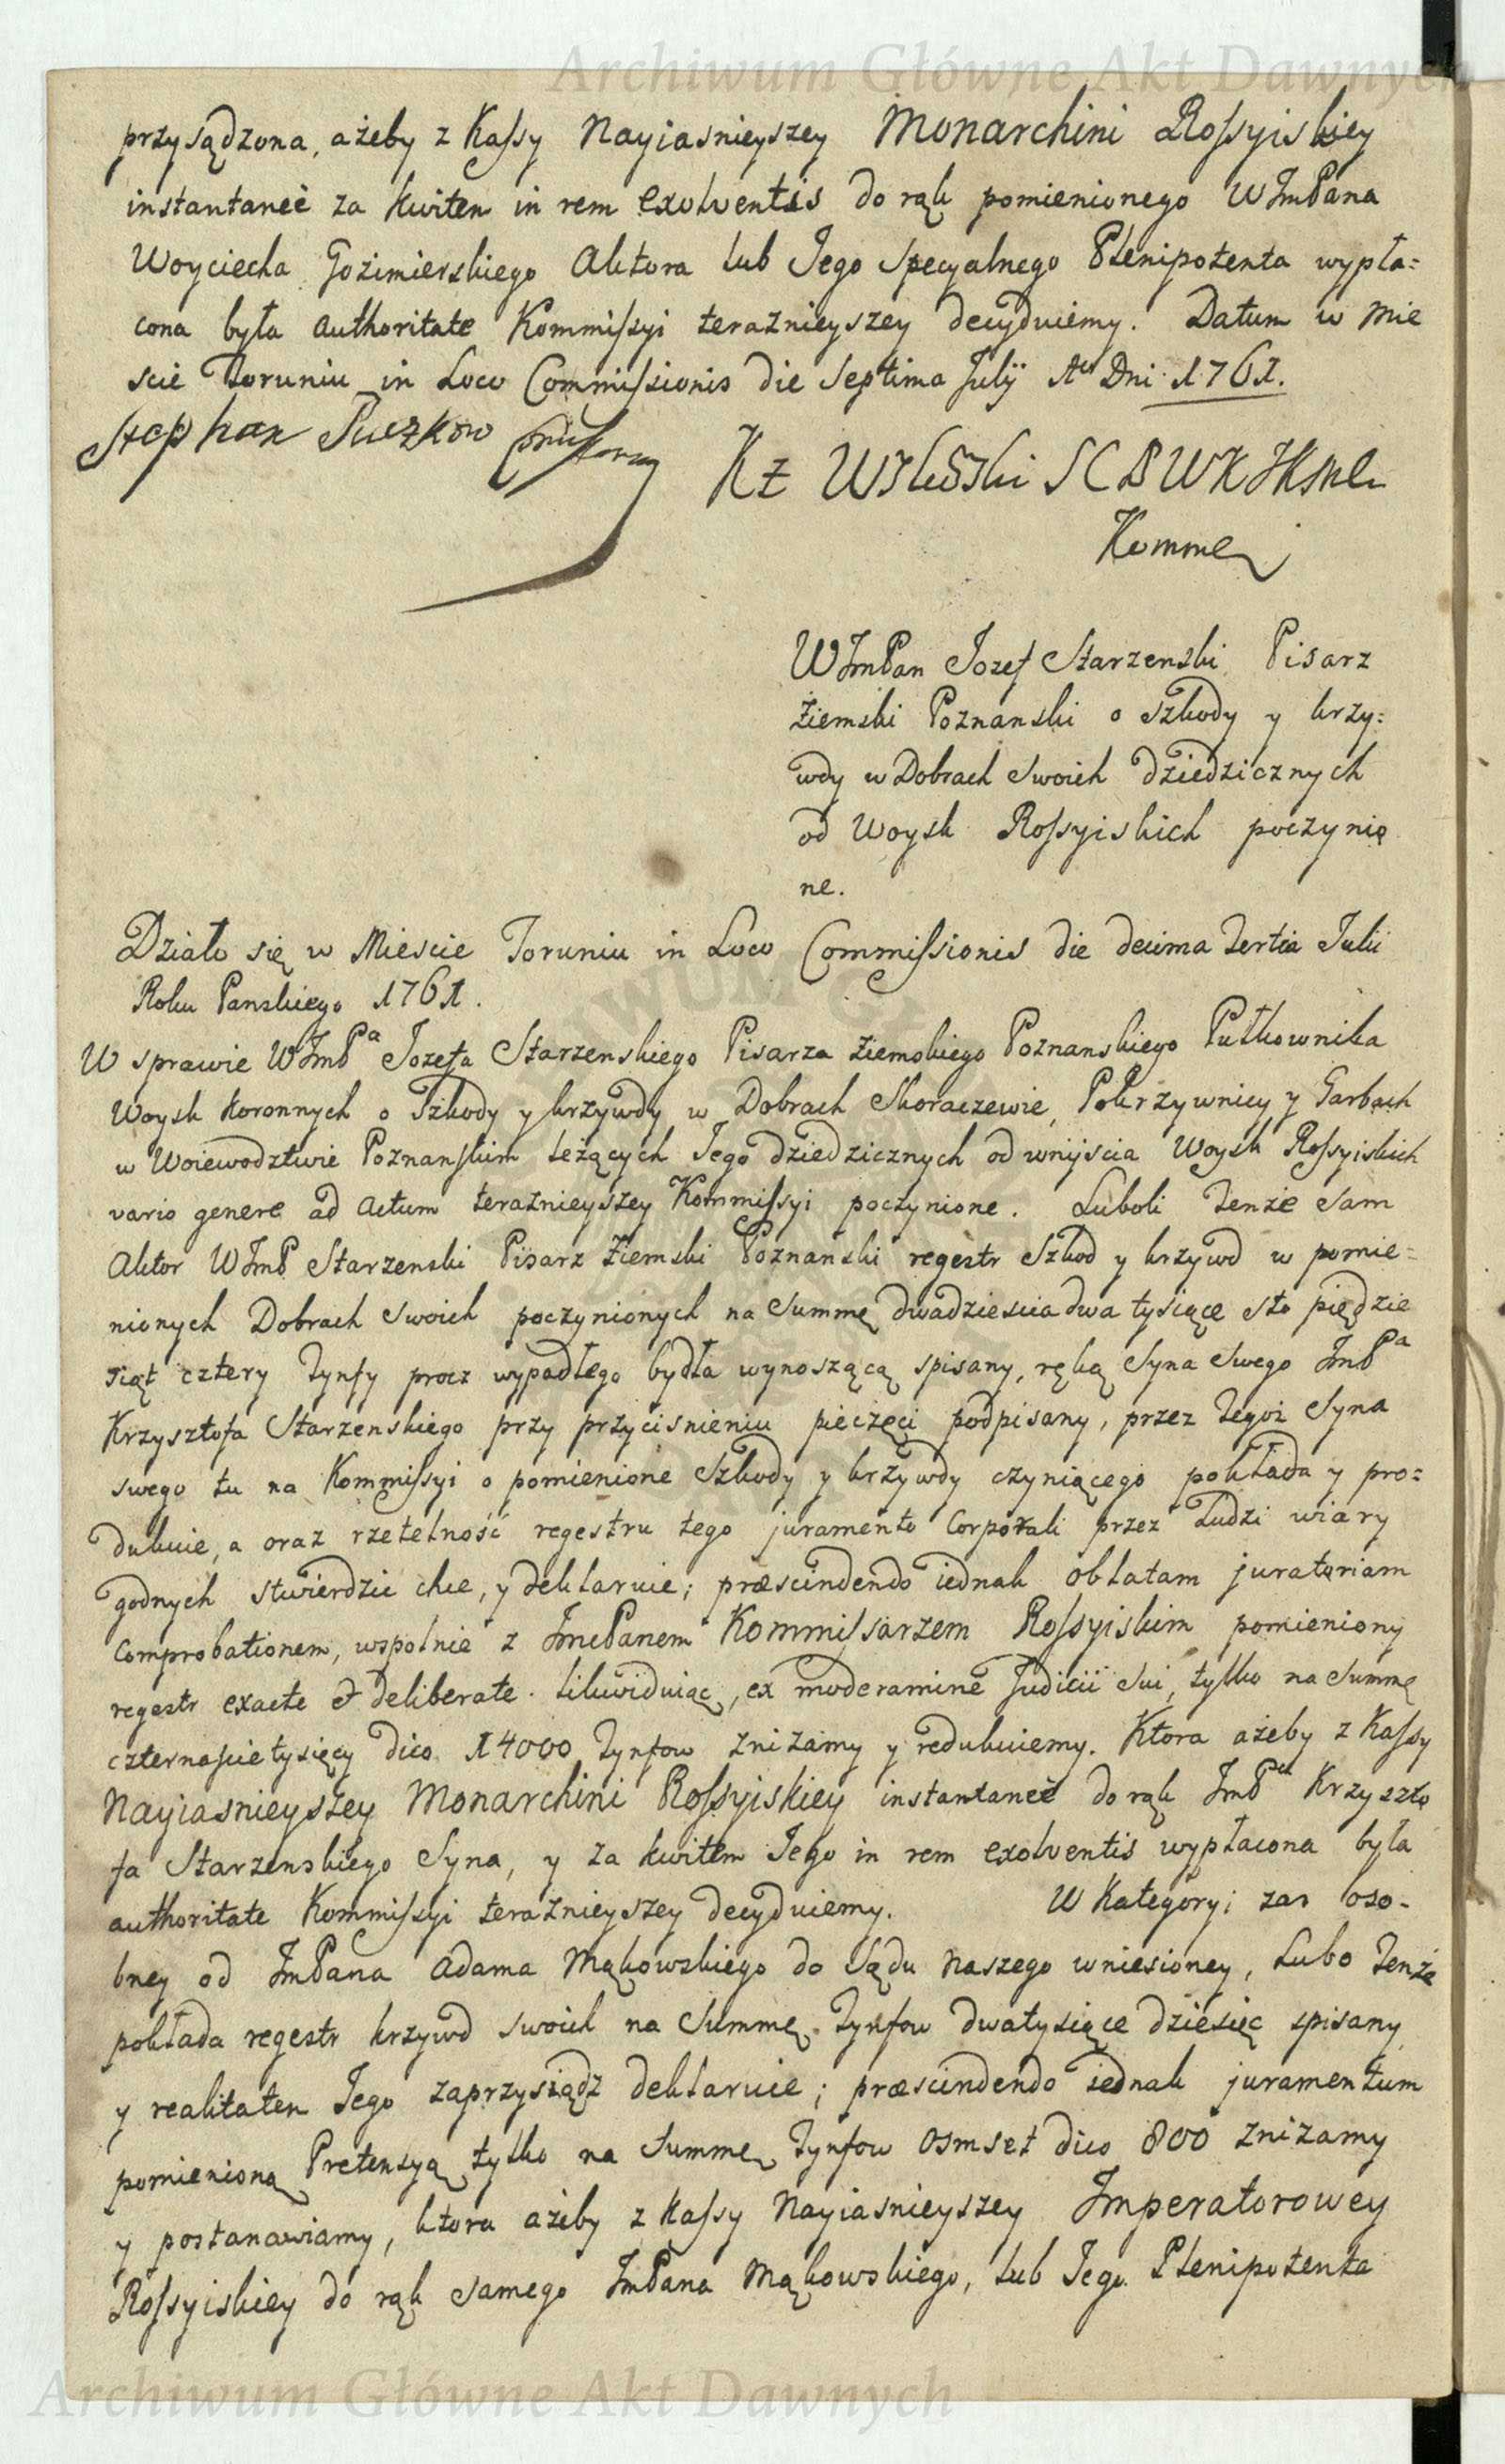 Archiwum Główne Akt Dawnych
przysądzona, ażeby z Kaſsy Nayiasnieyszey Monarchini Roſsyiskiey
instantaneè za kwitem in rem exolventis do rąk pomienionego WJmPana
Woyciecha Gozimierskiego Aktora lub Jego specyalnego Plenipotenta wypła=
cona była authoritate Kommiſsyi teraznieyszey decyduiemy. Datum w Mie
scie Toruniu in Loco Commiſsionis die Septima Julÿ Aº Dni 1761.
Stephan Puczkow
Kommez
WJmPan Jozef Starzenski Pisarz
Ziemski Poznanski o szkody y krzy=
wdy w Dobrach swoich dziedzicznych
od Woysk Roſsyiskich poczynio
ne.
Działo się w Miescie Toruniu in Loco Commiſsionis die decima tertia Julii
Roku Panskiego 1761.
W sprawie WJmPa Jozefa Starzenskiego Pisarza Ziemskiego Poznanskiego Pułkownika
Woysk Koronnych o szkody y krzywdy w Dobrach Skoraczewie, Pokrzywnicy y Garbach
w Woiewodztwie Poznanſkim leżących Jego dziedzicznych od wniyscia Woysk Roſsyiskich
vario genere ad actum teraznieyszey Kommiſsyi poczynione. Luboli tenże sam
Aktor WJmP Starzenski Pisarz Ziemski Poznanski regestr szkod y krzywd w pomie=
nionych Dobrach swoich poczynionych na Summę dwadziescia dwa tysiące sto piędzie
siąt cztery Tynfy procz wypadłego bydła wynoszącą spisany, ręką Syna swego JmPa
Krzysztofa Starzenskiego przy przycisnieniu pieczęci podpisany, przez tegoż Syna
swego tu na Kommiſsyi o pomienione szkody y krzywdy czyniącego pokłada y pro=
dukuie, a oraz rzetelność regestru tego juramento corporali przez Ludzi wiary
godnych stwierdzic chce, y deklaruie; præscindendo iednak oblatam juratoriam
comprobationem, wspolnie z JmcPanem Kommiſsarzem Roſsyiskim pomieniony
regestr exacte & deliberate likwiduiąc, ex moderamine Judicii sui, tylko na Summę
czternaſcie tysięcy dico 14000 Tynfow zniżamy y redukuiemy. Ktora ażeby z Kaſsy
Nayiasnieyszey Monarchini Roſsyiskiey instantaneè do rąk JmPa Krzyszto
fa Starzenskiego Syna, y za kwitem Jego in rem exolventis wypłacona była
authoritate Kommiſsyi teraznieyszey decyduiemy. W Kategoryi zas oso-
bney od JmPana Adama Mąkowskiego do Sądu naszego wniesioney, Lubo tenże
pokłada regestr krzywd swoich na Summę Tynfow dwa tysiące dziesięc spisany
y realitatem Jego zaprzysiądz deklaruie; præscindendo iednak juramentum
pomienioną Pretensyą tylko na Summę Tynfow osmset dico 800 zniżamy
y postanawiamy, ktora ażeby z Kaſsy Nayiasnieyszey Imperatorowey
Roſsyiskiey do rąk samego JmPana Mąkowskiego, lub Jego Plenipotenta
Archiwum Główne Akt Dawnych